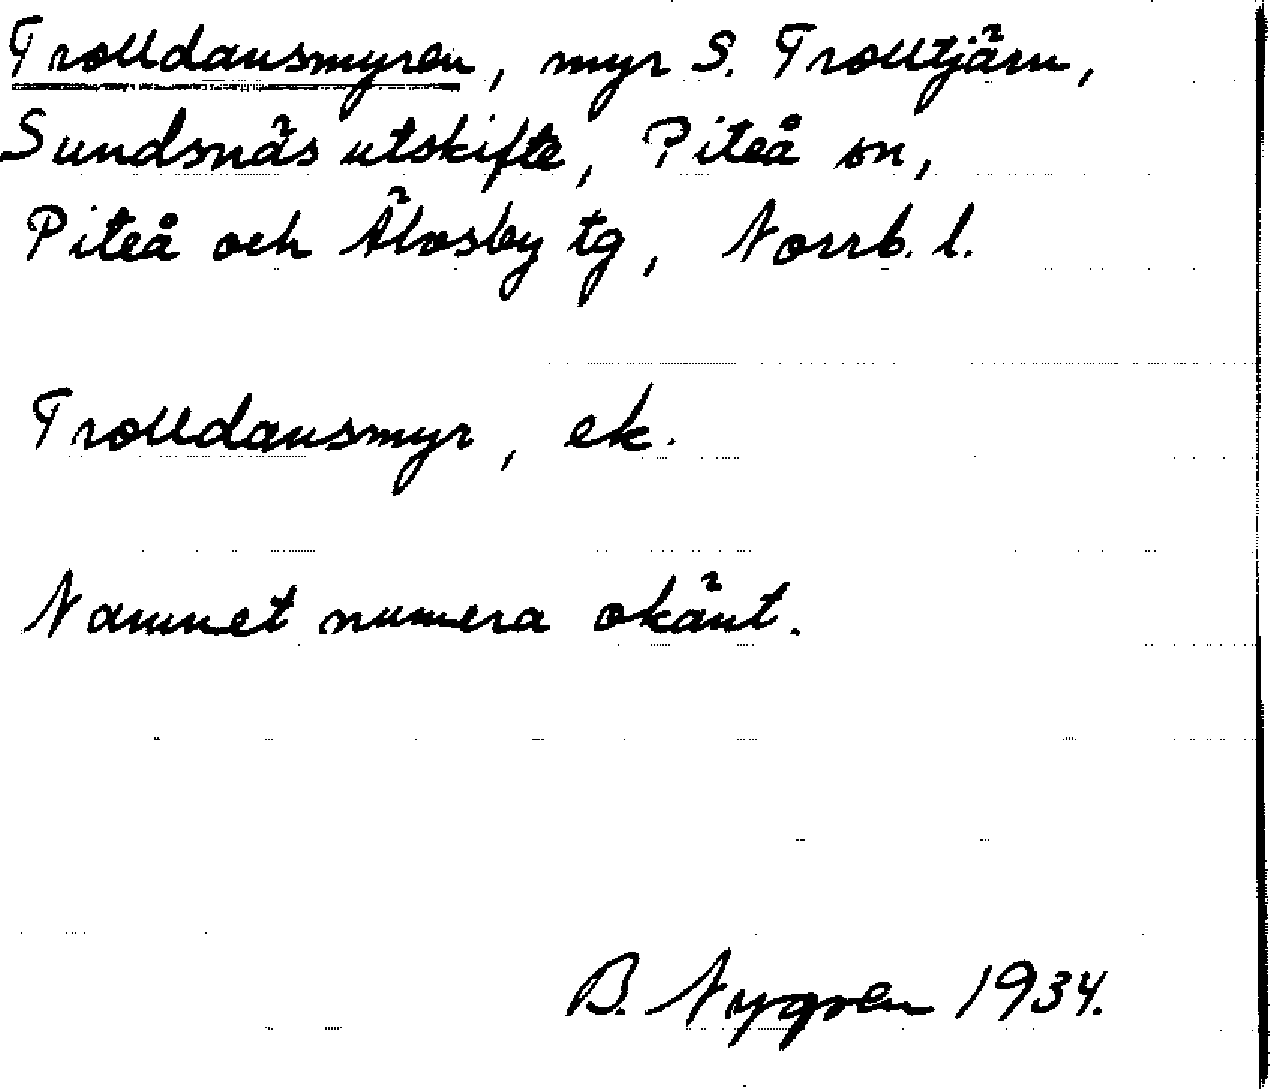 Trolldansmyren, myr S. Trolltjärn,
Sundsnäs utskifte, Piteå sn,
Piteå och Älvsby tg, Norrb. l.
Trolldansmyr, ek.
Namnet numera okänt.
B. Nygren 1934.